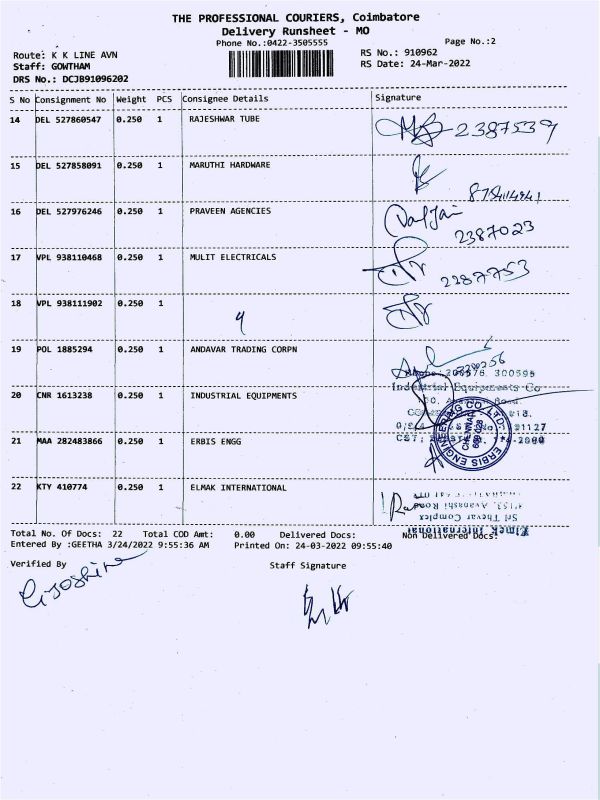 THE PROFESSIONAL COURIERS, Coimbatore
Delivery Runsheet - MO
Phone No.:0422-3505555
Page No.:2
Route: K K LINE AVN
RS No.: 910962
Staff: GOWTHAM
RS Date: 24-Mar-2022
DRS No.: DCJB91096202
S No Consignment No Weight PCS Consignee Details Signature
14 DEL 527860547 0.250 1 RAJESHWAR TUBE 2387539
15 DEL 527858091 0.250 1 MARUTHI HARDWARE
16 DEL 527976246 0.250 1 PRAVEEN AGENCIES
2387023
17 VPL 938110468 0.250 1 MULIT ELECTRICALS
2287753
18 VPL 938111902 0.250 1
19 POL 1885294 0.250 1 ANDAVAR TRADING CORPN
300595
Industrial Equipments Co
20 CNR 1613238 0.250 1 INDUSTRIAL EQUIPMENTS
21 MAA 282483866 0.250 1 ERBIS ENGG
ERBIS ENGINEERING CO. LTD.
CHENNAI
22 KTY 410774 0.250 1 ELMAK INTERNATIONAL
Avanashi Road
Sri Thevar Complex
Elmek International
Total No. Of Docs: 22 Total COD Amt: 0.00 Delivered Docs: Non Delivered Docs:
Entered By :GEETHA 3/24/2022 9:55:36 AM Printed On: 24-03-2022 09:55:40
Verified By Staff Signature